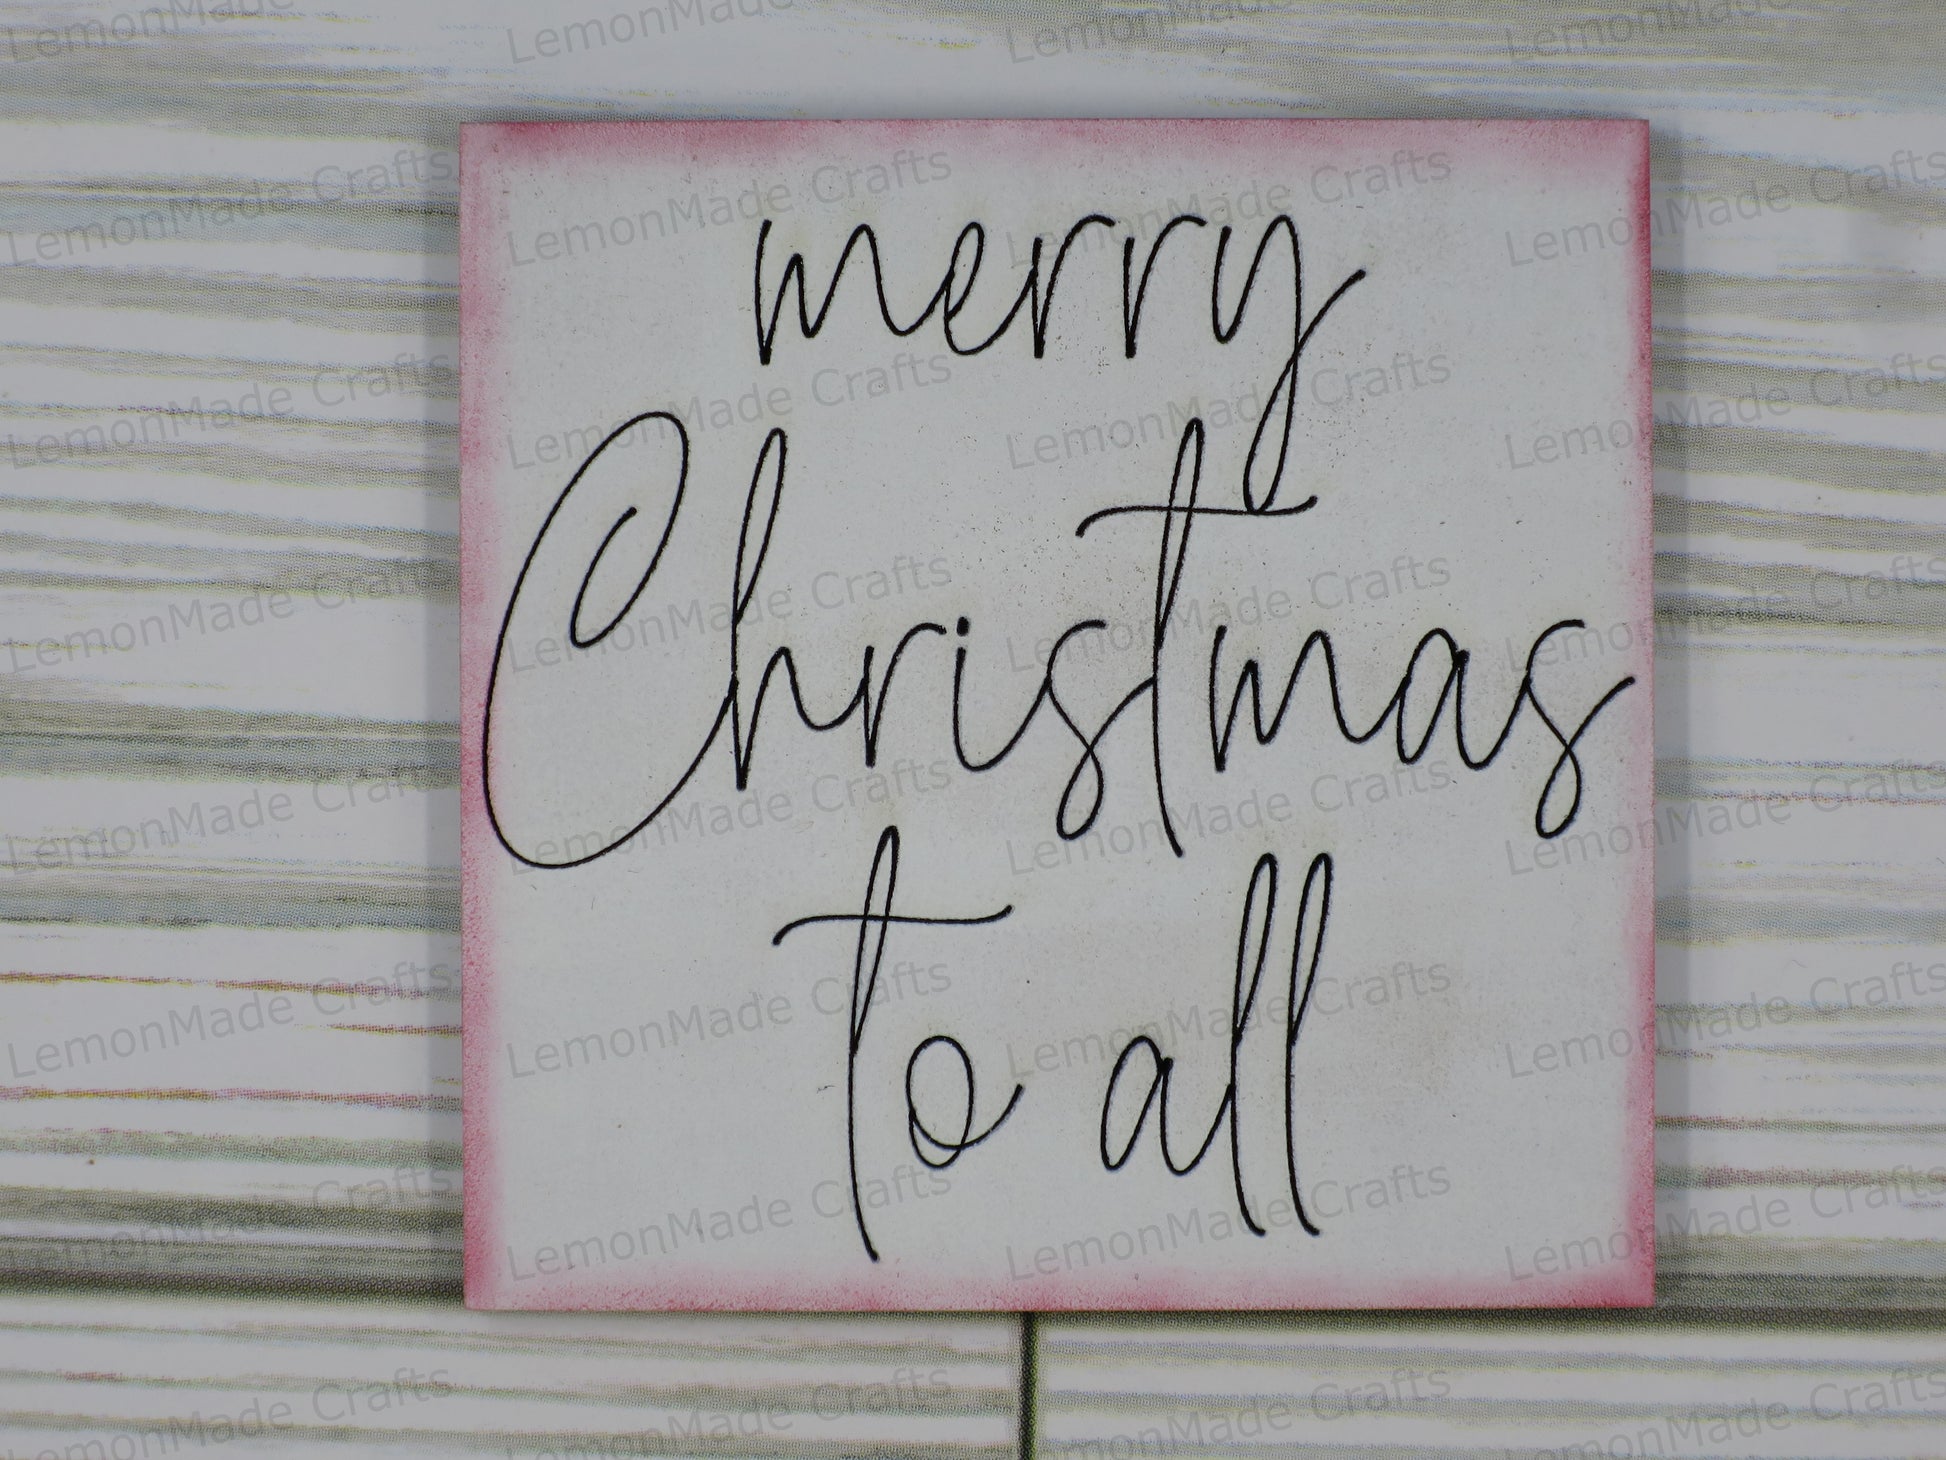 merry
Christmas
to all
LemonMade Crafts